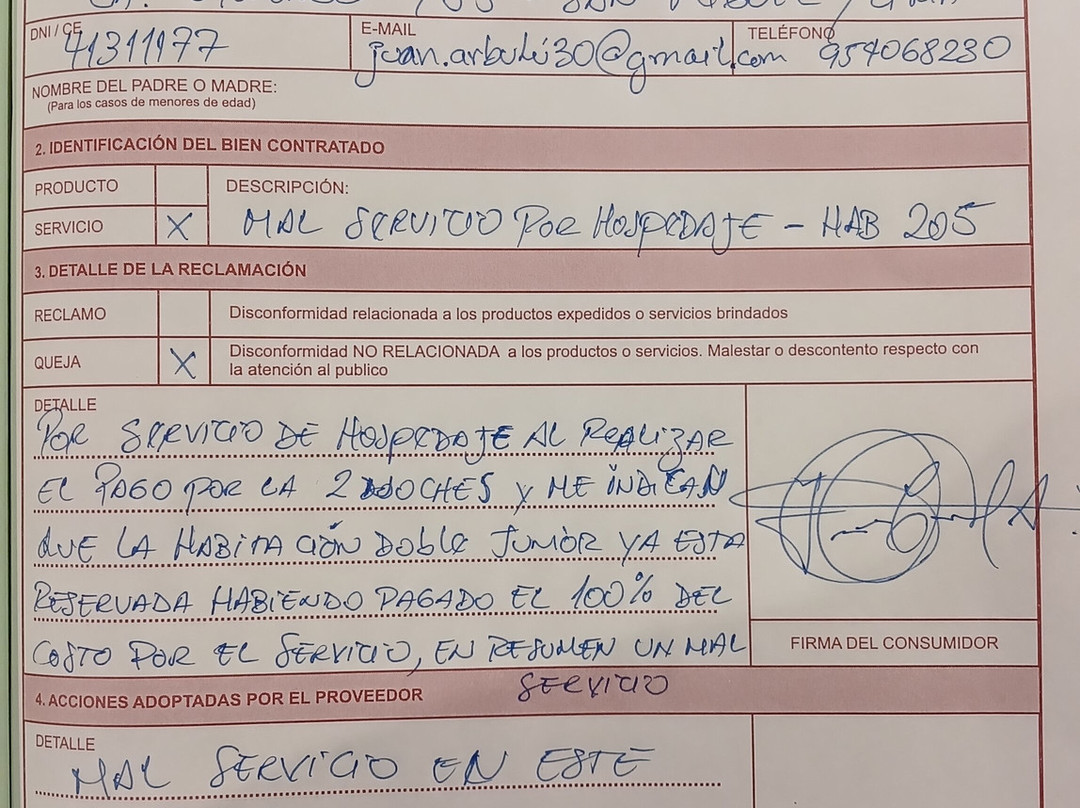 DNI / CE 41311177 E-MAIL juan.arbulú30@gmail.com TELÉFONO 954068230
NOMBRE DEL PADRE O MADRE:
(Para los casos de menores de edad)
2. IDENTIFICACIÓN DEL BIEN CONTRATADO
PRODUCTO
DESCRIPCIÓN:
SERVICIO X MAL SERVICIO POR HOSPEDAJE - HAB 205
3. DETALLE DE LA RECLAMACIÓN
RECLAMO Disconformidad relacionada a los productos expedidos o servicios brindados
QUEJA X Disconformidad NO RELACIONADA a los productos o servicios. Malestar o descontento respecto con
la atención al publico
DETALLE
POR SERVICIO DE HOSPEDAJE AL REALIZAR
EL PAGO POR LA 2 NOCHES Y ME INDICAN
QUE LA HABITACIÓN DOBLE JUNIOR YA ESTA
RESERVADA HABIENDO PAGADO EL 100% DEL
COSTO POR EL SERVICIO, EN RESUMEN UN MAL
SERVICIO
FIRMA DEL CONSUMIDOR
4. ACCIONES ADOPTADAS POR EL PROVEEDOR
DETALLE
MAL SERVICIO EN ESTE